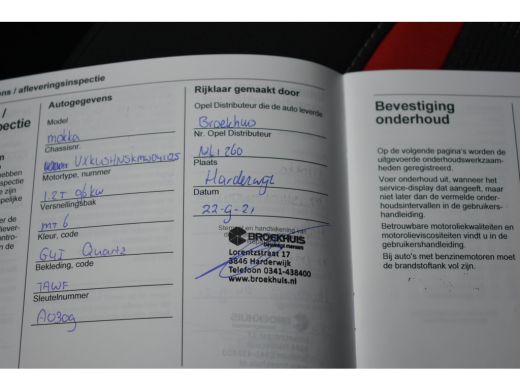 ens / afleveringsinspectie
Autogegevens
Model
mokka
Chassisnr.
Motortype, nummer
1.2T 96kw
Versnellingsbak
mt6
Kleur, code
G4I Quartz
Bekleding, code
TAWF
Sleutelnummer
A0309
Rijklaar gemaakt door
Opel Distributeur die de auto leverde
Broekhuis
Nr. Opel Distributeur
NL1260
Plaats
Harderwijk
Datum
22-9-21
Stempel en handtekening van
BROEKHUIS
Lorentzstraat 17
3846 Harderwijk
Telefoon 0341-438400
www.broekhuis.nl
Bevestiging
onderhoud
Op de volgende pagina's worden de
uitgevoerde onderhoudswerkzaam-
heden geregistreerd.
Voer onderhoud uit, wanneer het
service-display dat aangeeft, maar
niet later dan de vermelde onder-
houdsintervallen in de gebruikers-
handleiding.
Betrouwbare motoroliekwaliteiten en
motorolieviscositeiten vindt u in de
gebruikershandleiding.
Bij auto's met benzinemotoren moet
de brandstoftank vol zijn.